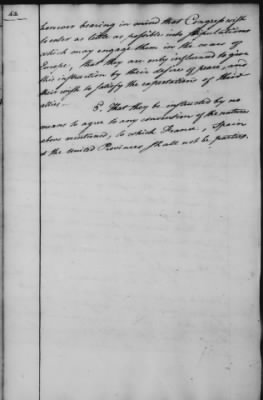 42
however bearing in mind that Congress wish
to enter as little as possible into stipulations
which may engage them in the wars of
Europe, that they are only influenced to give
this instruction by their desire of peace, and
their wish to satisfy the expectations of their
allies.
5. That they be instructed by no
means to agree to any convention of the nature
above mentioned, to which France, Spain
& the United Provinces, shall not be parties.